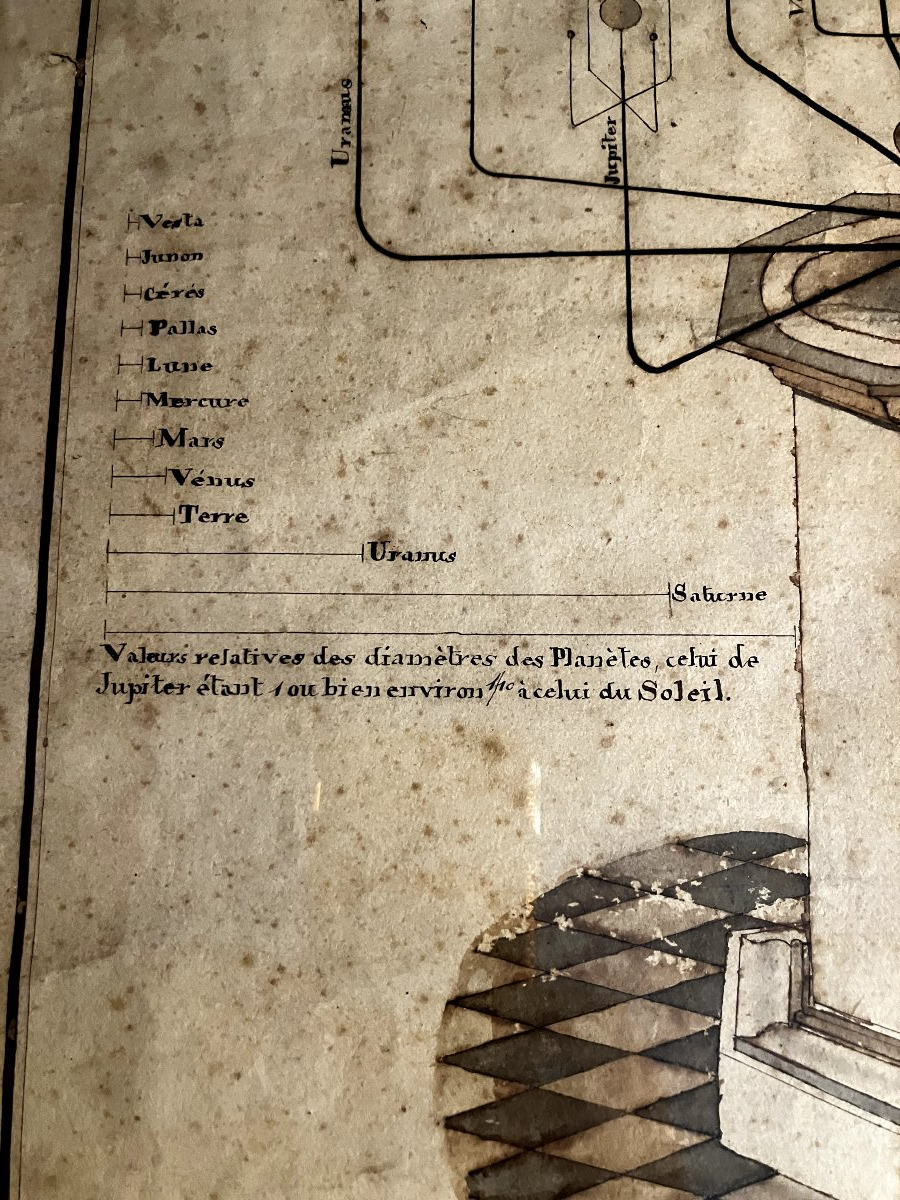 Uranus
Jupiter
Vesta
Junon
Cérés
Pallas
Lune
Mercure
Mars
Vénus
Terre
Uranus
Saturne
Valeurs relatives des diamètres des Planètes, celui de
Jupiter étant 1 ou bien environ 1/10 à celui du Soleil.